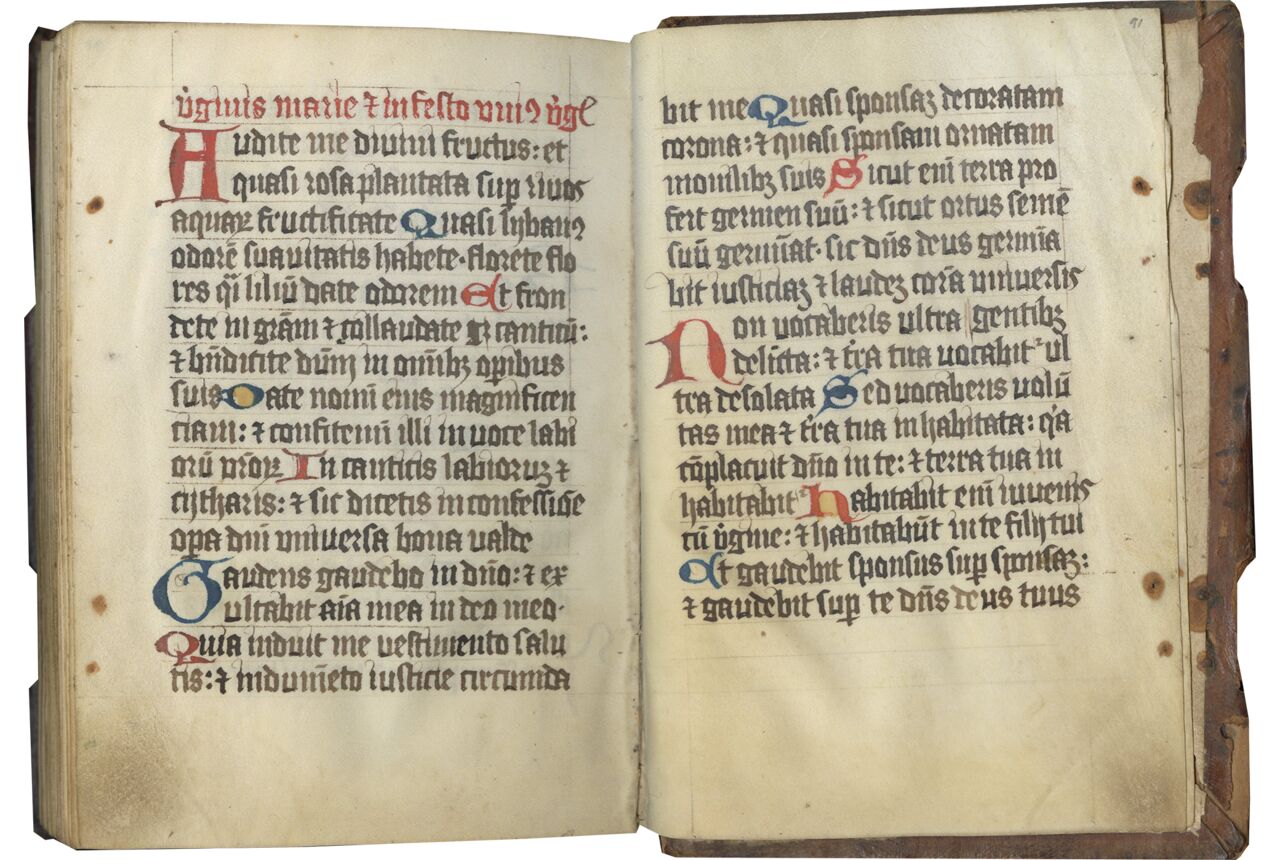 v̇gīnis marie ⁊ in festo vniꝰ v̇gī
Audite me diuini fructus: et
quasi rosa plantata suꝑ riuos
aquaꝝ fructificate Quasi lybanꝰ
odorē suauitatis habete· florete flo
res qͣi liliū date odorem Et fron
dete in grām ⁊ collaudate canticū:
⁊ bn̄dicite dūm in om̄ibꝫ oꝑibus
suis Date nomī eius magnificen
ciam: ⁊ confitemī illi in uoce labi
orū vr̄oꝝ In canticis labioruꝫ ⁊
cytharis: ⁊ sic dicetis in confessiōe
oꝑa dn̄i vniuersa bona valde
Gaudens gaudebo in dn̄o: ⁊ ex
ultabit aīa mea in deo meo·
Quia induit me vestimento salu
tis: ⁊ indumēto iusticie circumda
91
bit me Quasi sponsaꝫ decoratam
corona: ⁊ quasi sponsam ornatam
monilibꝫ suis Sicut enī terra pro
fert germen suū: ⁊ sicut ortus semē
suū germīat· sic dn̄s deus germīa
bit iusticiaꝫ ⁊ laudeꝫ corā vniuersis
gentibꝫ
Non uocaberis ultra
delicta: ⁊ tr̄a tua uocabit᷑ ul
tra desolata Sed uocaberis uolū
tas mea ⁊ tr̄a tua inhabitata: qͥa
cōplacuit dn̄o in te: ⁊ terra tua in
habitabit᷑ habitabit enī iuuenis
cū v̇gine: ⁊ habitabūt in te filij tui
Et gaudebit sponsus suꝑ sponsaꝫ:
⁊ gaudebit suꝑ te dn̄s deus tuus